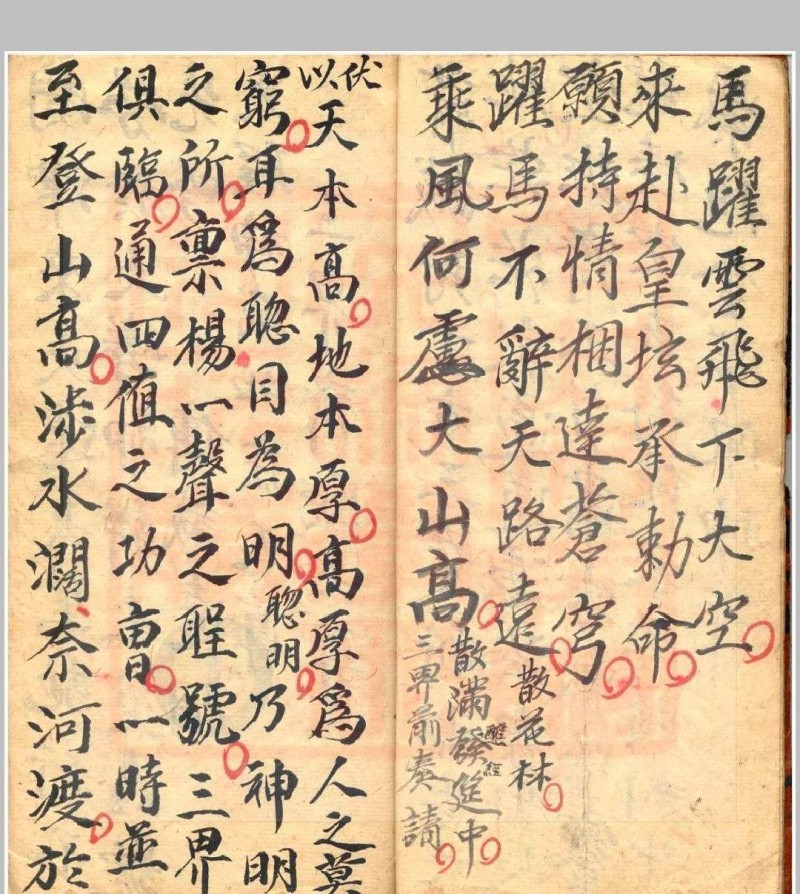 馬躍雲飛下大空
來赴皇坛承勅命
願持情悃達蒼穹
躍馬不辭天路遠 散花林
乘風何慮大山高 散滿發筵中
三界前奏請
伏以天本高地本厚高厚爲人之莫
窮耳爲聰目為明聰明乃神明
之所禀楊一聲之聖號三界
俱臨通四值之功曹一時並
至登山高涉水濶奈河渡於